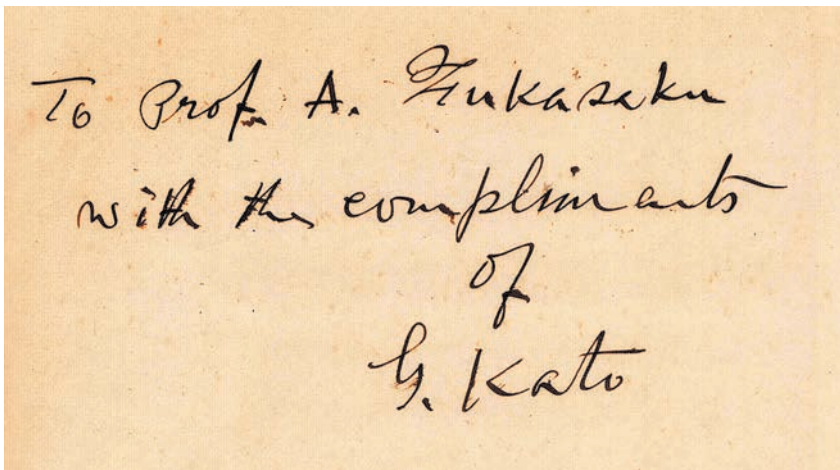 To Prof. A. Fukasaku
with the compliments
of
G. Kato